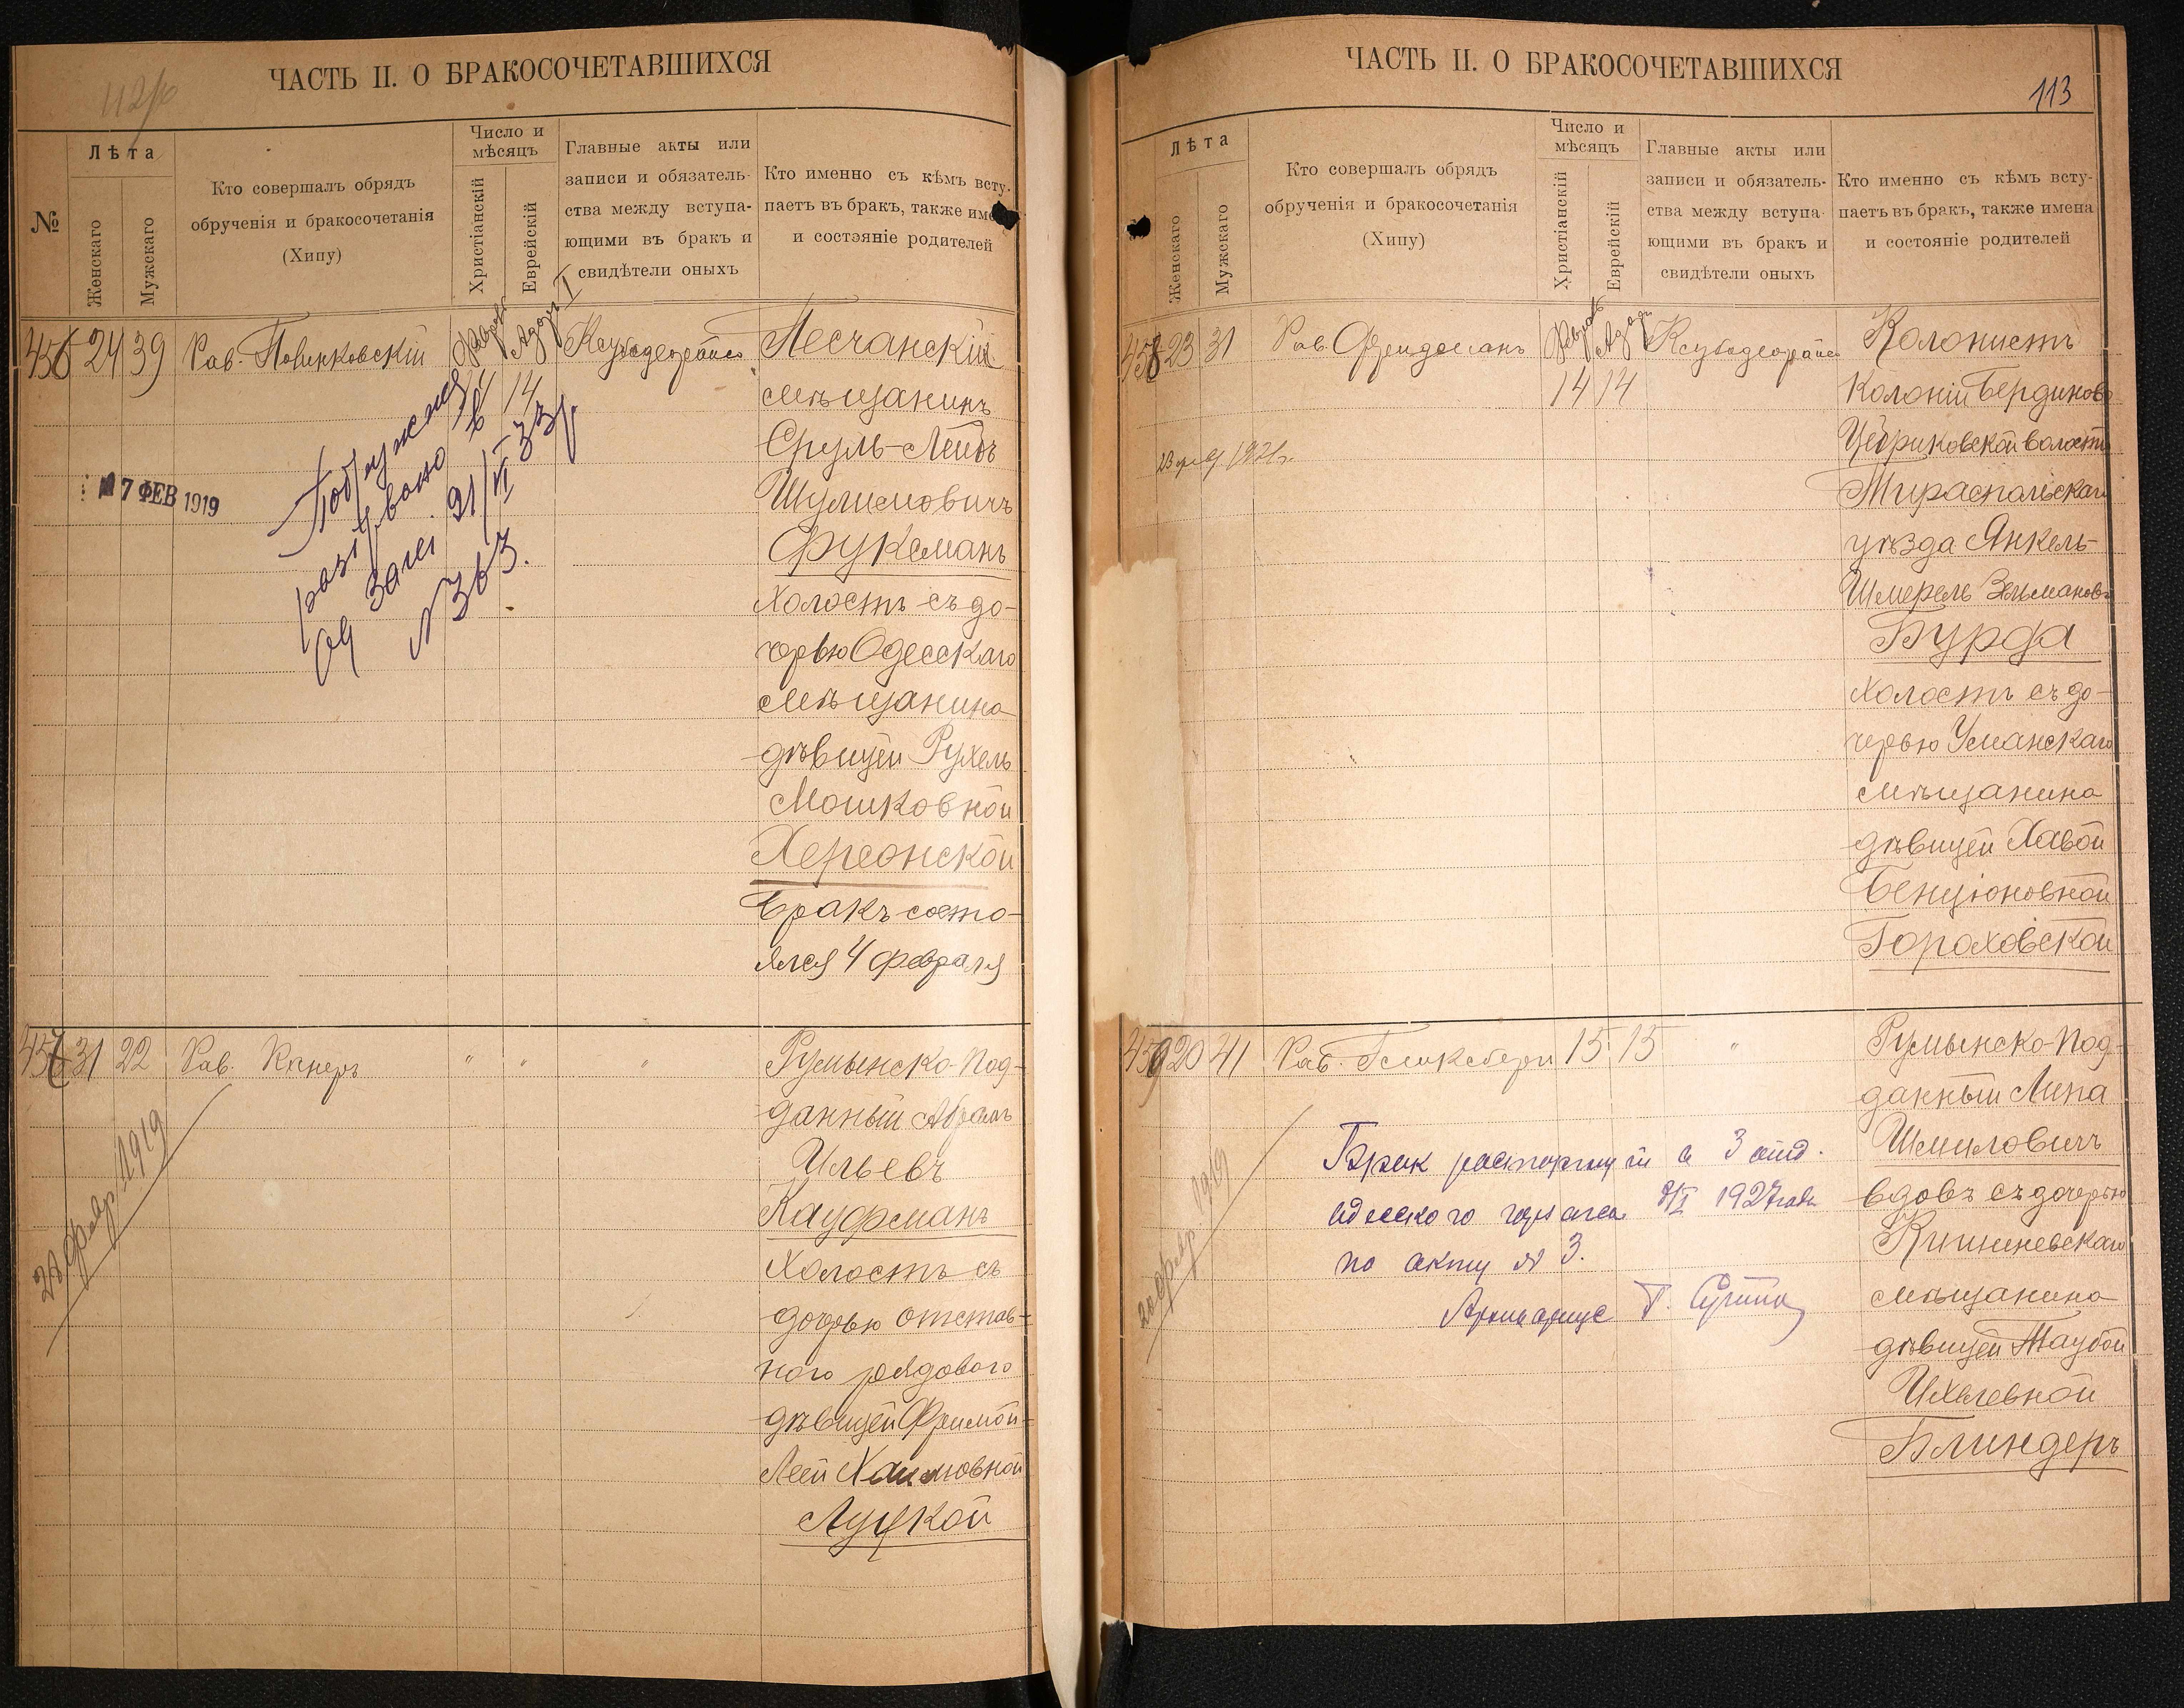 112/об
ЧАСТЬ II. О БРАКОСОЧЕТАВШИХСЯ
№
Лѣта
Женскаго
Мужскаго
Кто совершалъ обрядъ
обрученія и бракосочетанія
(Хипу)
Число и
мѣсяцъ
Христіанскій
Еврейскій
Главные акты или
записи и обязатель-
ства между вступа-
ющими въ бракъ и
свидѣтели оныхъ
Кто именно съ кѣмъ всту-
паетъ въ бракъ, также име
и состэяніе родителей
456 24 39 Рав.
14 14
Песчанскій
мѣщанинъ
Сруль-Лейбъ
Шулимовичъ
Фуксманъ
холостъ съ до-
черью Одесскаго
мѣщанина
дѣвицей Рухель
Мошковной
Херсонской
Бракъ состо-
ялся 4 февраля
7 ФЕВ 1919
Подружжя
розірвано в
од. Загсі 21/VI 33 р
N 363.
457 31 22 Рав. Канеръ " " "
Румынско-под-
данный Абрамъ
Ильевъ
Кауфманъ
холостъ съ
дочерью отстав-
ного рядового
дѣвицей Фримой-
Леей Хаимовной
Луцкой
февр. 1919
ЧАСТЬ II. О БРАКОСОЧЕТАВШИХСЯ
113
Лѣта
Женскаго
Мужскаго
Кто совершалъ обрядъ
обрученія и бракосочетанія
(Хипу)
Число и
мѣсяцъ
Христіанскій
Еврейскій
Главные акты или
записи и обязатель-
ства между вступа-
ющими въ бракъ и
свидѣтели оныхъ
Кто именно съ кѣмъ всту-
паетъ въ бракъ, также имена
и состояніе родителей
458 23 31 Рав. Фридманъ
14 14
Колонистъ
Колоніи Бердиново
волости
Тираспольскаго
уѣзда Янкель-
Шмерель Зельмановъ
Бурда
холостъ съ до-
черью Уманскаго
мѣщанина
дѣвицей Хавой
Бенціоновной
Гороховской
459 20 41 Рав. Гликсбергъ 15 15 "
Румынско-под-
данный Липа
Шмиловичъ
вдовъ съ дочерью
Кишиневскаго
мѣщанина
дѣвицей Таубой
Ихелевной
Блиндеръ
февр. 1919
Брак расторгнут в 3 отд.
Одесского нотариата 1927 года
по акту № 3.
Архивариус